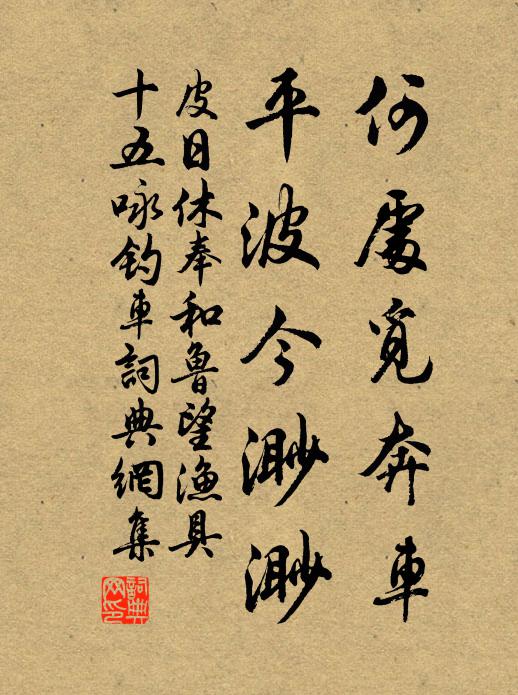 何處覓奔車
平波今渺渺
皮日休奉和魯望漁具
十五咏釣車詞典網集
詞典
网印